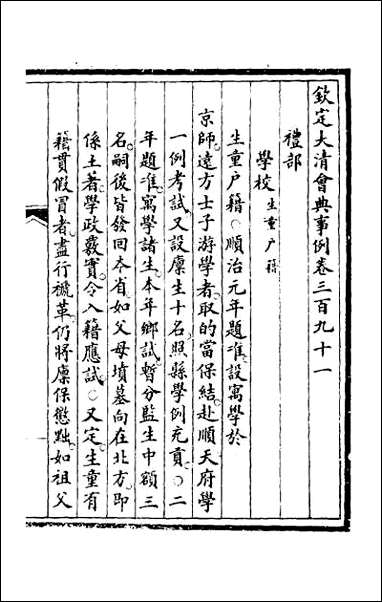 欽定大清會典事例卷三百九十一
禮部
學校生童戶籍
生童戶籍○順治元年題准設寓學於
京師遠方士子游學者取的當保結赴順天府學
一例考試又設廩生十名照縣學例充貢○二
年題准寓學諸生本年鄉試暫分監生中額三
名嗣後皆發回本省如父母墳墓向在北方即
係土著學政覈實令入籍應試○又定生童有
籍貫假冒者盡行褫革仍將廩保懲黜如祖父